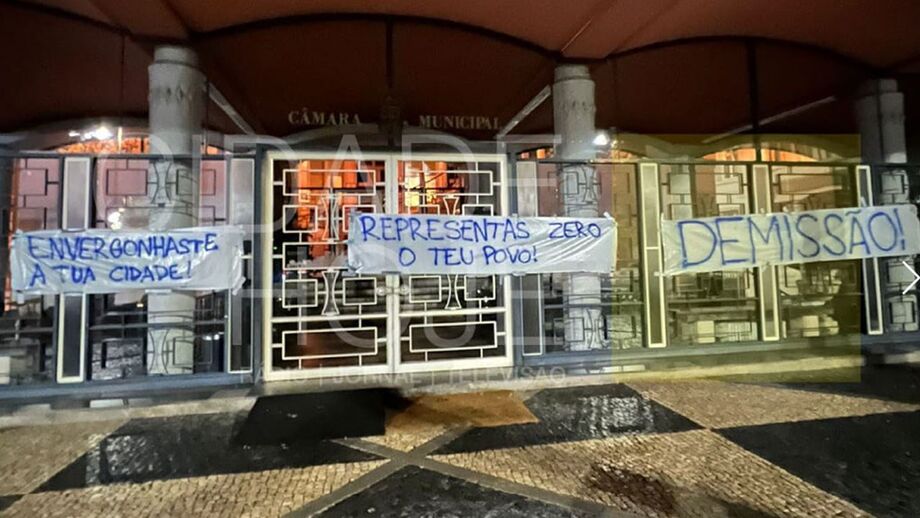 CÂMARA MUNICIPAL
ENVERGONHASTE
A TUA CIDADE!
REPRESENTAS ZERO
O TEU POVO!
DEMISSÃO!
CIDADE
HOJE
TELEVISÃO